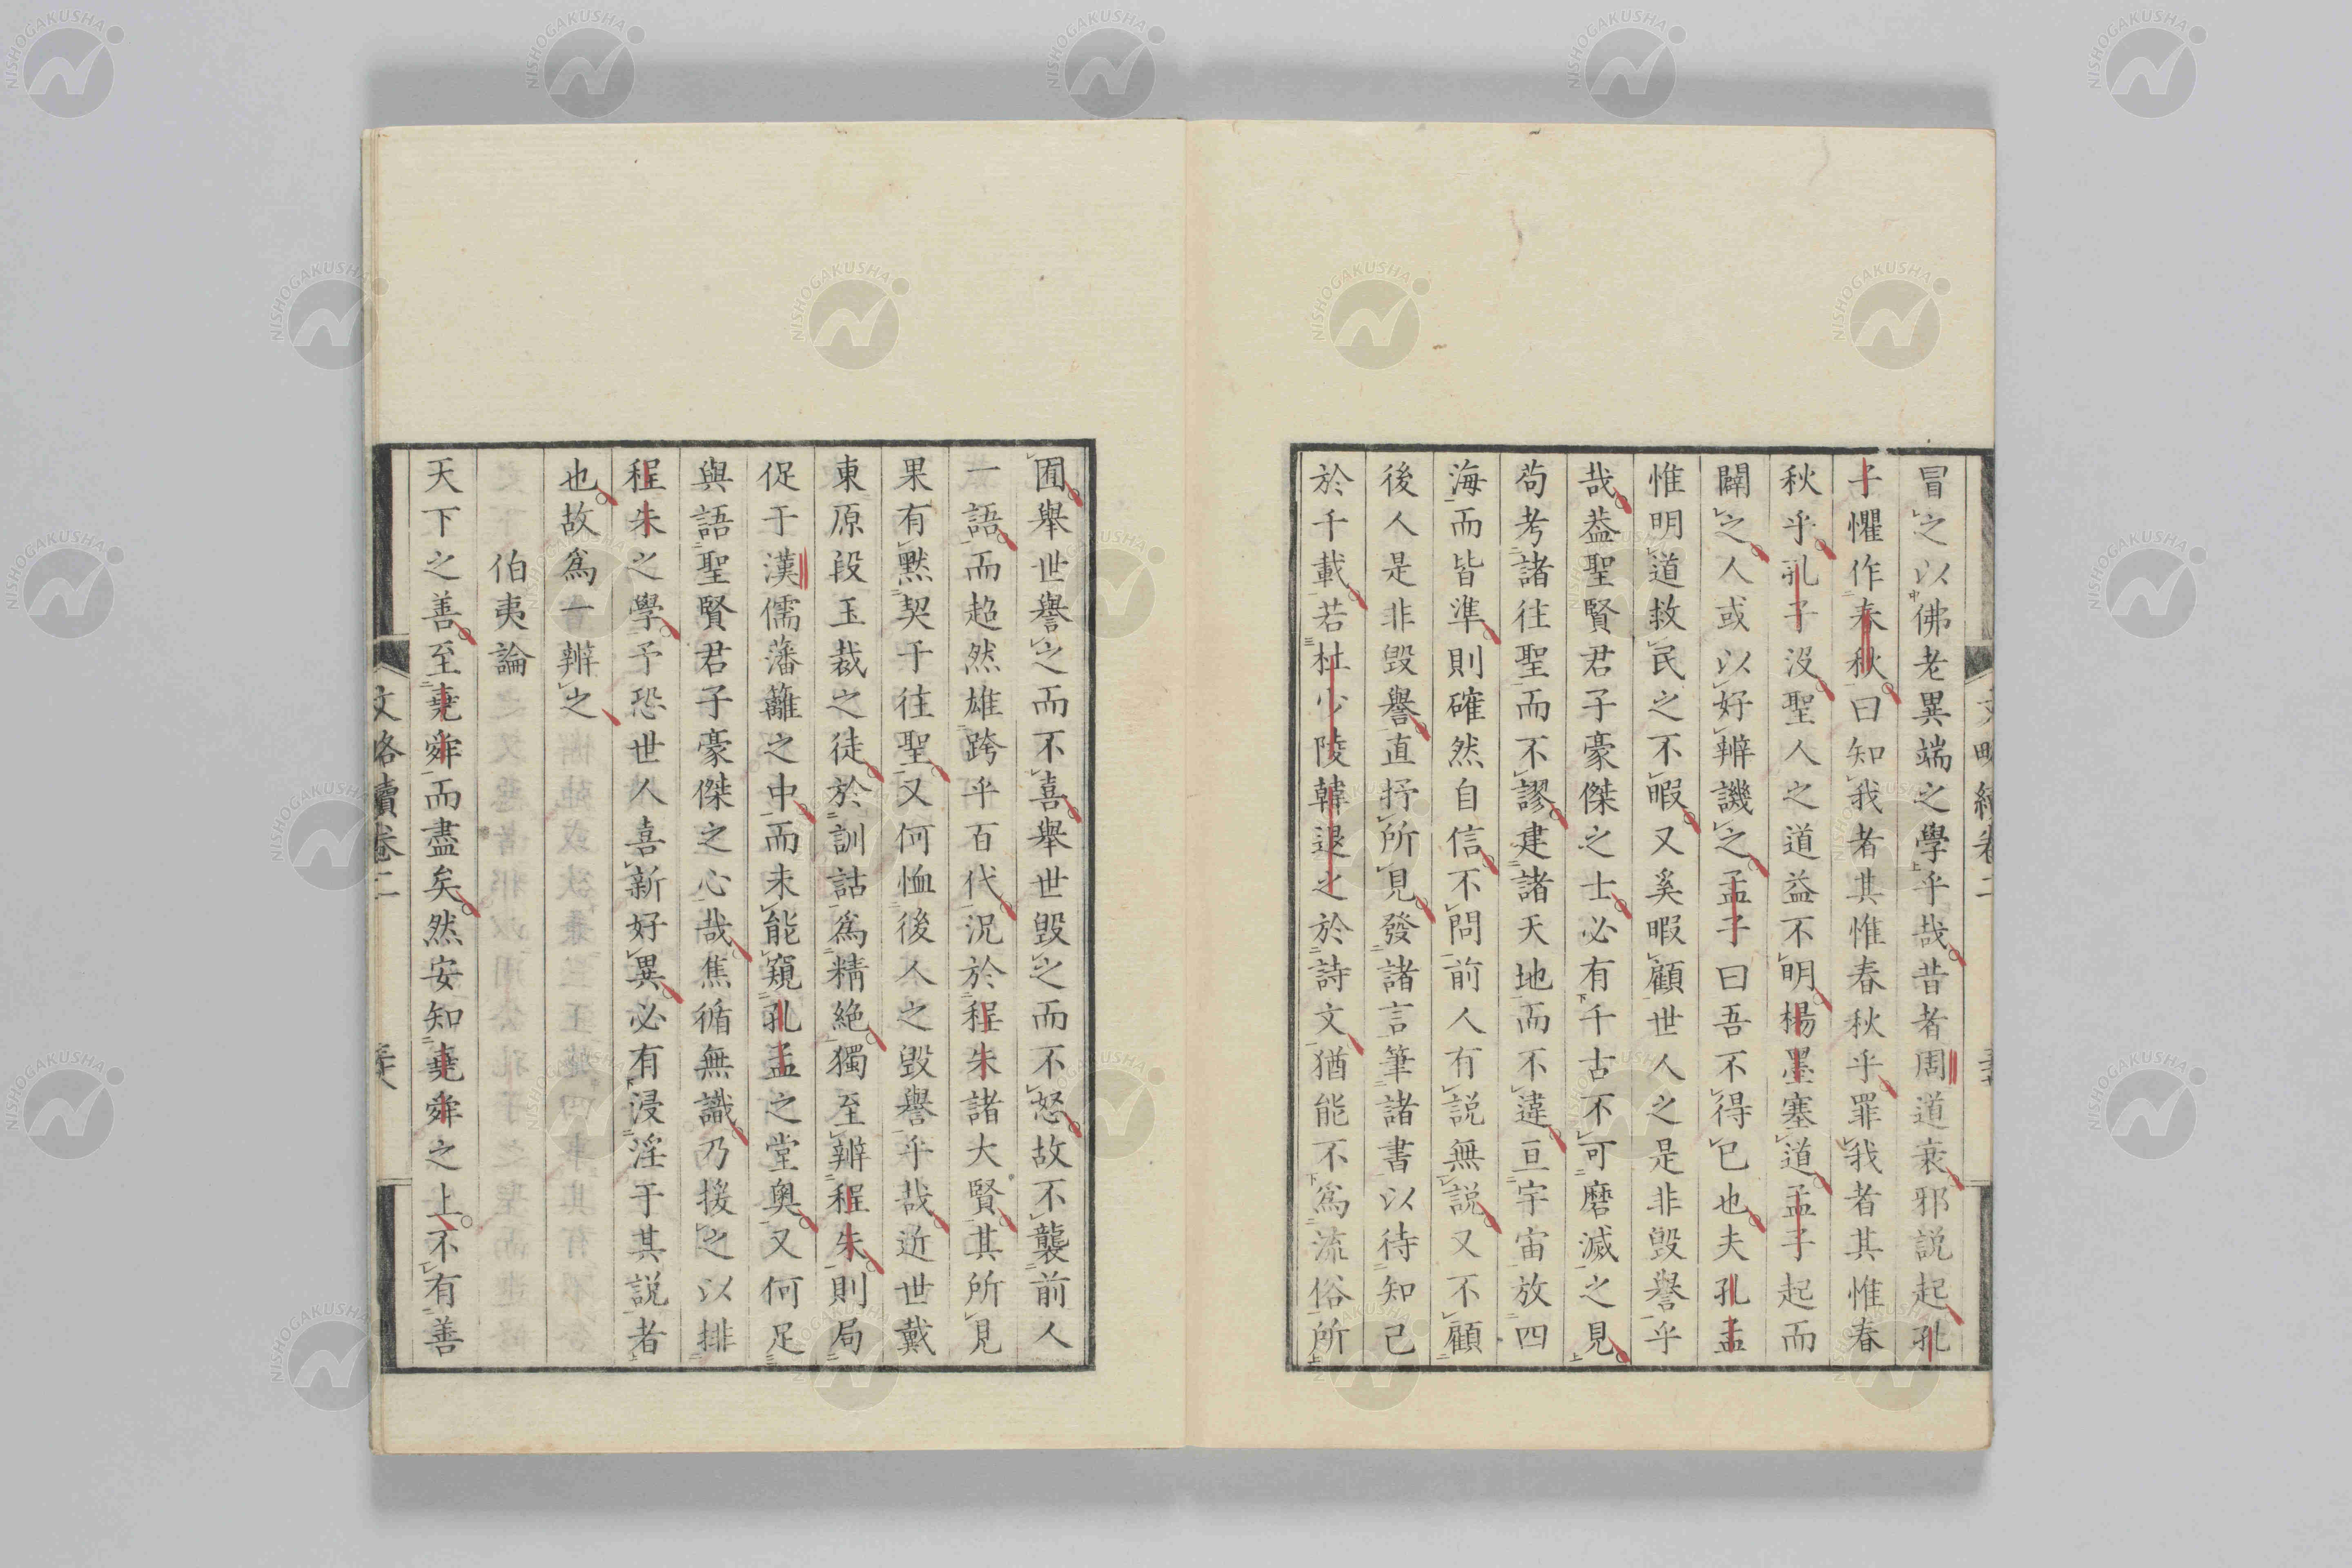 冒之以佛老異端之學乎哉昔者周道衰邪説起孔
子懼作春秋曰知我者其惟春秋乎罪我者其惟春
秋乎孔子没聖人之道益不明楊墨塞道孟子起而
闢之人或以好辨譏之孟子曰吾不得已也夫孔孟
惟明道救民之不暇又奚暇顧世人之是非毀譽乎
哉葢聖賢君子豪傑之士必有千古不可磨滅之見
苟考諸往聖而不謬建諸天地而不違亘宇宙放四
海而皆準則確然自信不問前人有説無説又不顧
後人是非毀譽直抒所見發諸言筆諸書以待知己
於千載若杜少陵韓退之於詩文猶能不爲流俗所
囿舉世譽之而不喜舉世毀之而不怒故不襲前人
一語而超然雄跨乎百代況於程朱諸大賢其所見
果有黙契于往聖又何恤後人之毀譽乎哉近世戴
東原段玉裁之徒於訓詁爲精絶獨至辨程朱則局
促于漢儒藩籬之中而未能窺孔孟之堂奥又何足
與語聖賢君子豪傑之心哉焦循無識乃援之以排
程朱之學予恐世人喜新好異必有浸淫于其説者
也故爲一辨之
伯夷論
天下之善至堯舜而盡矣然安知堯舜之上不有善
文略續卷二
NISHOGAKUSHA